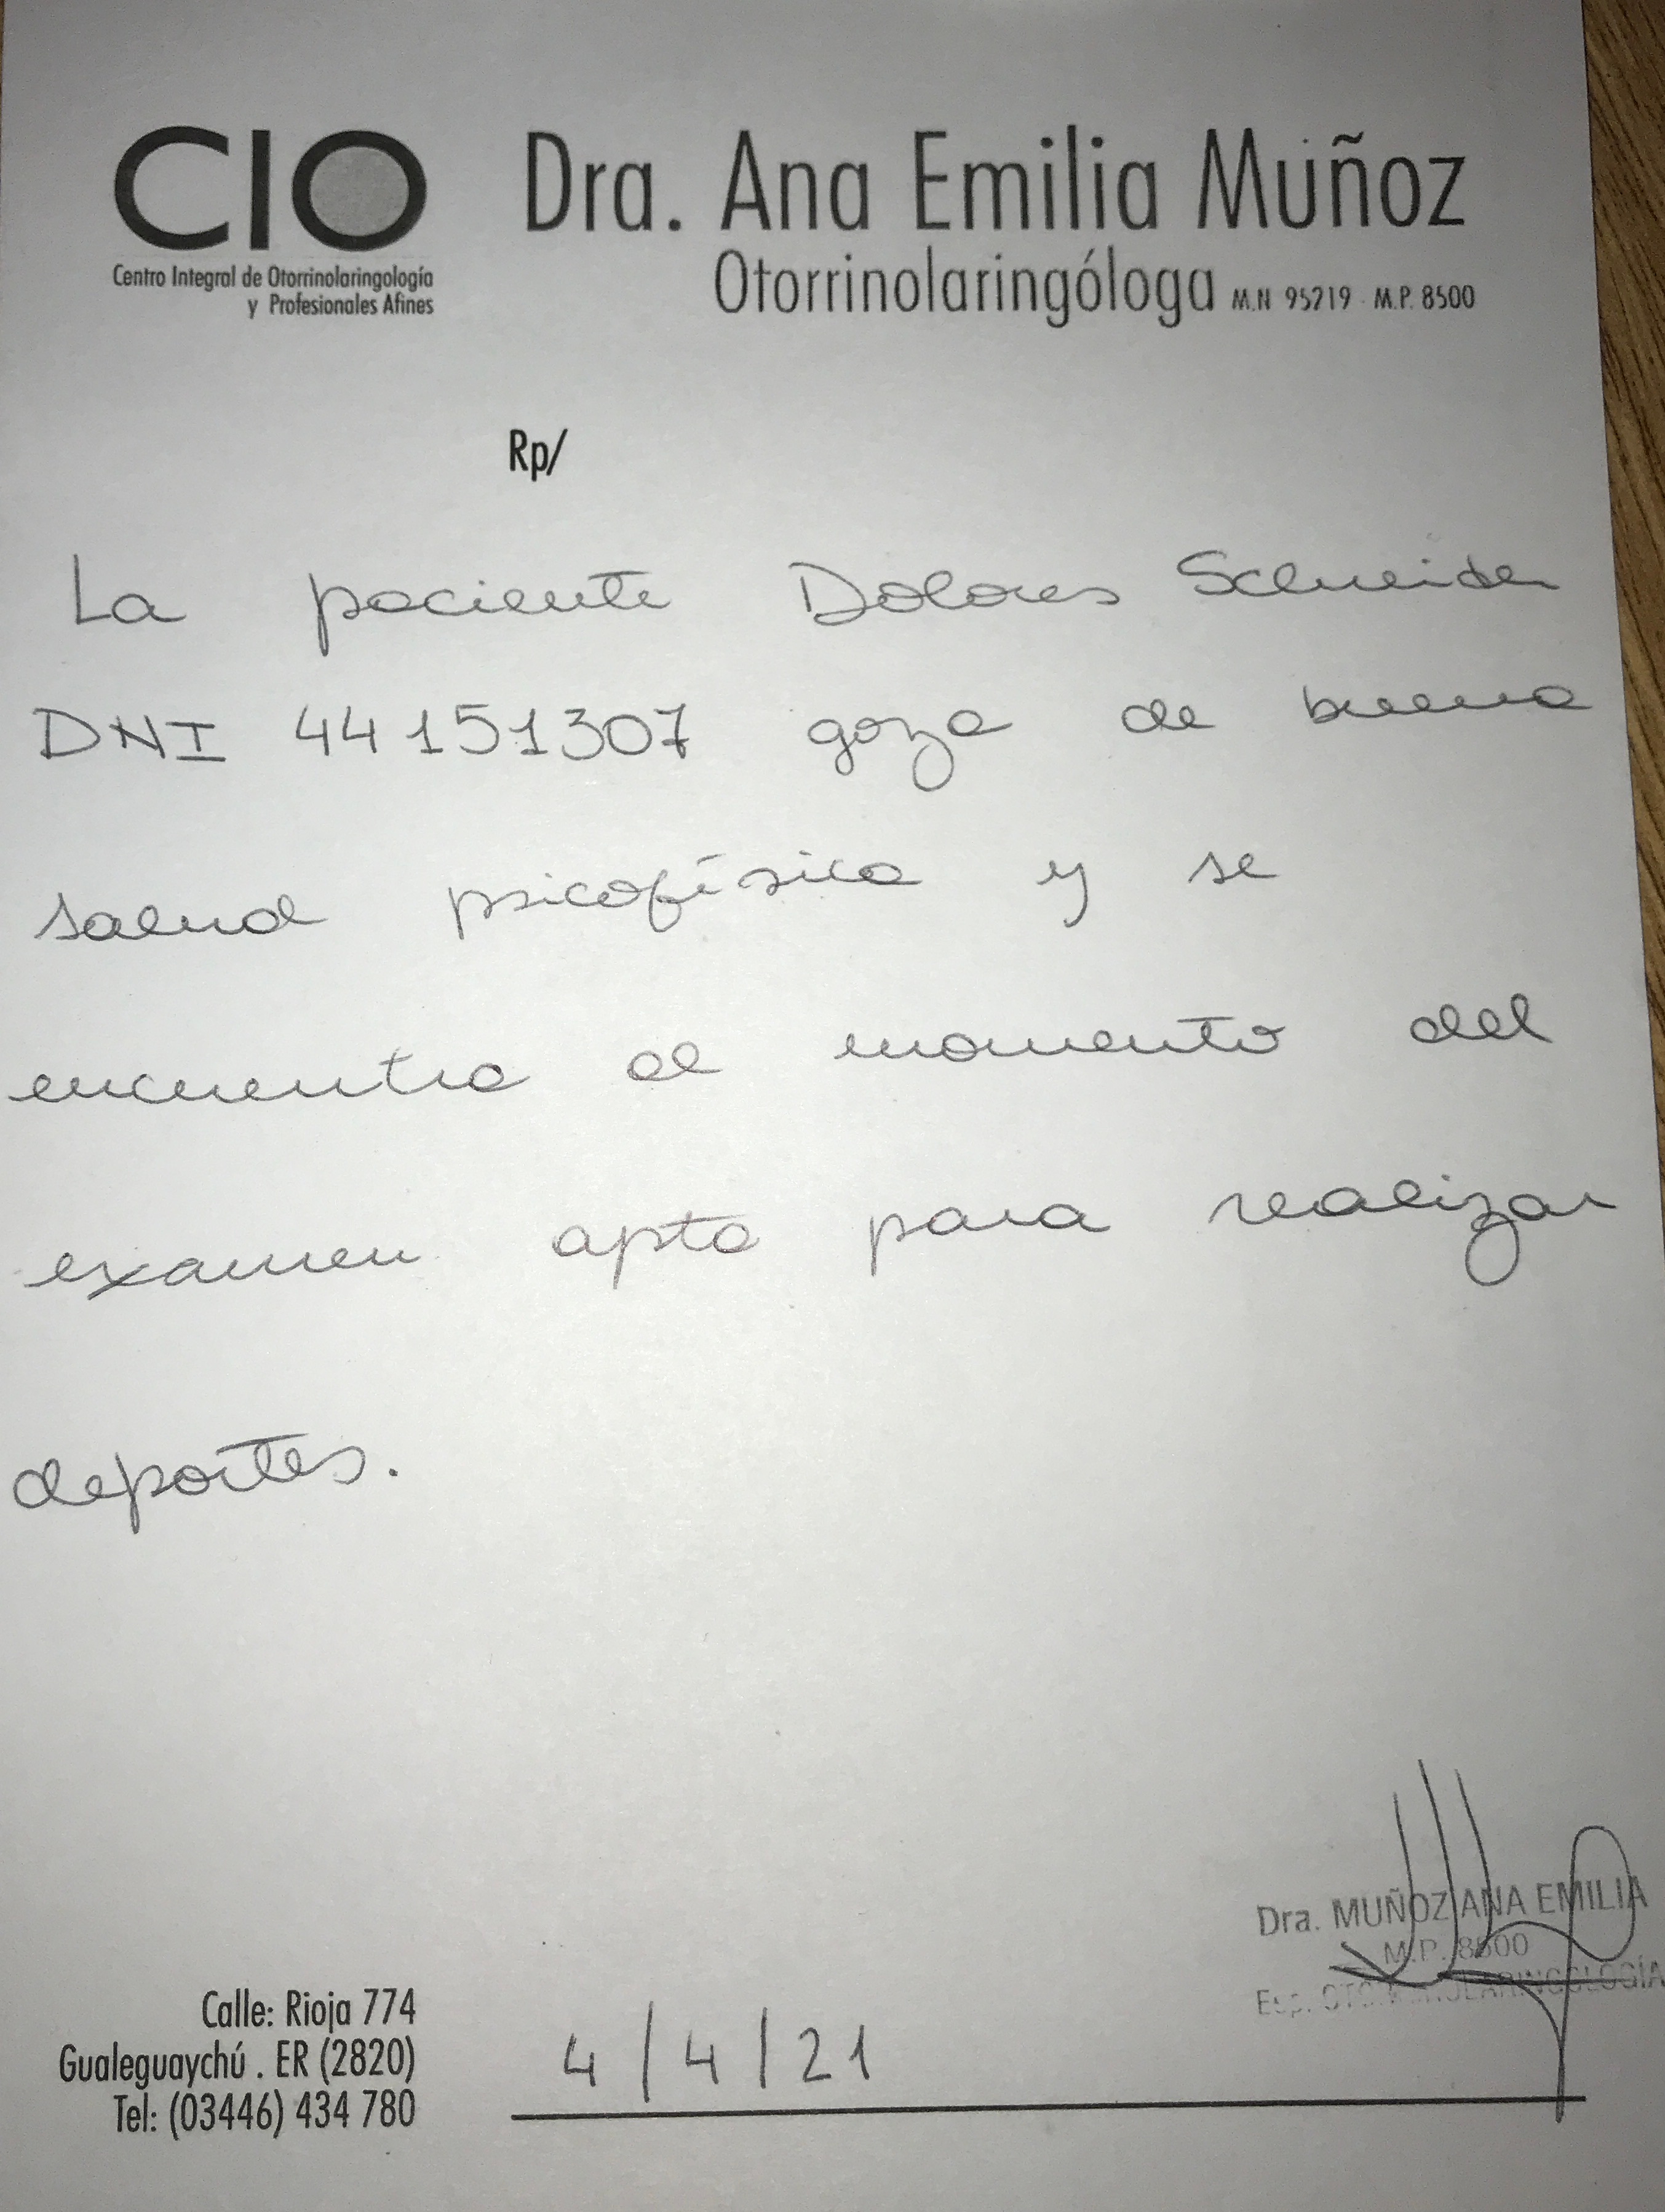 CIO
Centro Integral de Otorrinolaringología
y Profesionales Afines
Dra. Ana Emilia Muñoz
Otorrinolaringóloga M.N 95219 - M.P. 8500
Rp/
La paciente Dolores Schneider
DNI 44151307 goza de buena
salud psicofísica y se
encuentra al momento del
examen apta para realizar
deportes.
Dra. MUÑOZ ANA EMILIA
M.P. 8500
Esp. OTORRINOLARINGOLOGÍA
Calle: Rioja 774
Gualeguaychú . ER (2820)
Tel: (03446) 434 780
4/4/21